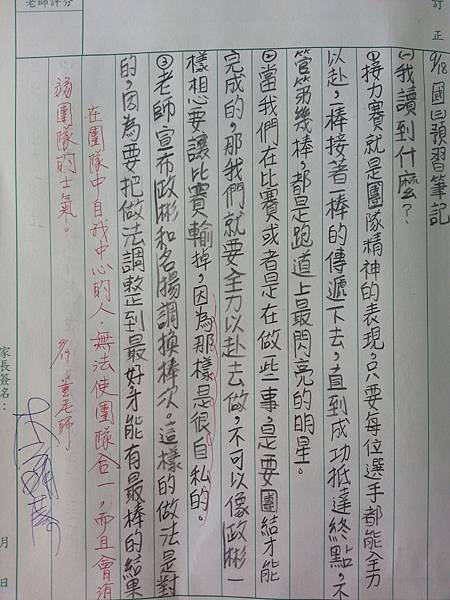 訂正
老師評分
9/18 國㈢預習筆記
㈠我讀到什麼？
①接力賽就是團隊精神的表現，只要每位選手都能全力
以赴，一棒接著一棒的傳遞下去，直到成功抵達終點，不
管第幾棒，都是跑道上最閃亮的明星。
②當我們在比賽或者是在做些事，是要團結才能
完成的，那我們就要全力以赴去做，不可以像政彬一
樣想要讓比賽輸掉，因為那樣是很自私的。
③老師宣布政彬和名揚調換棒次。這樣的做法是對
的，因為要把做法調整到最好才能有最棒的結果
在團隊中，自我中心的人，無法使團隊合一，而且會消
弱團隊的士氣。
9/19 董老師
家長簽名：
月 日